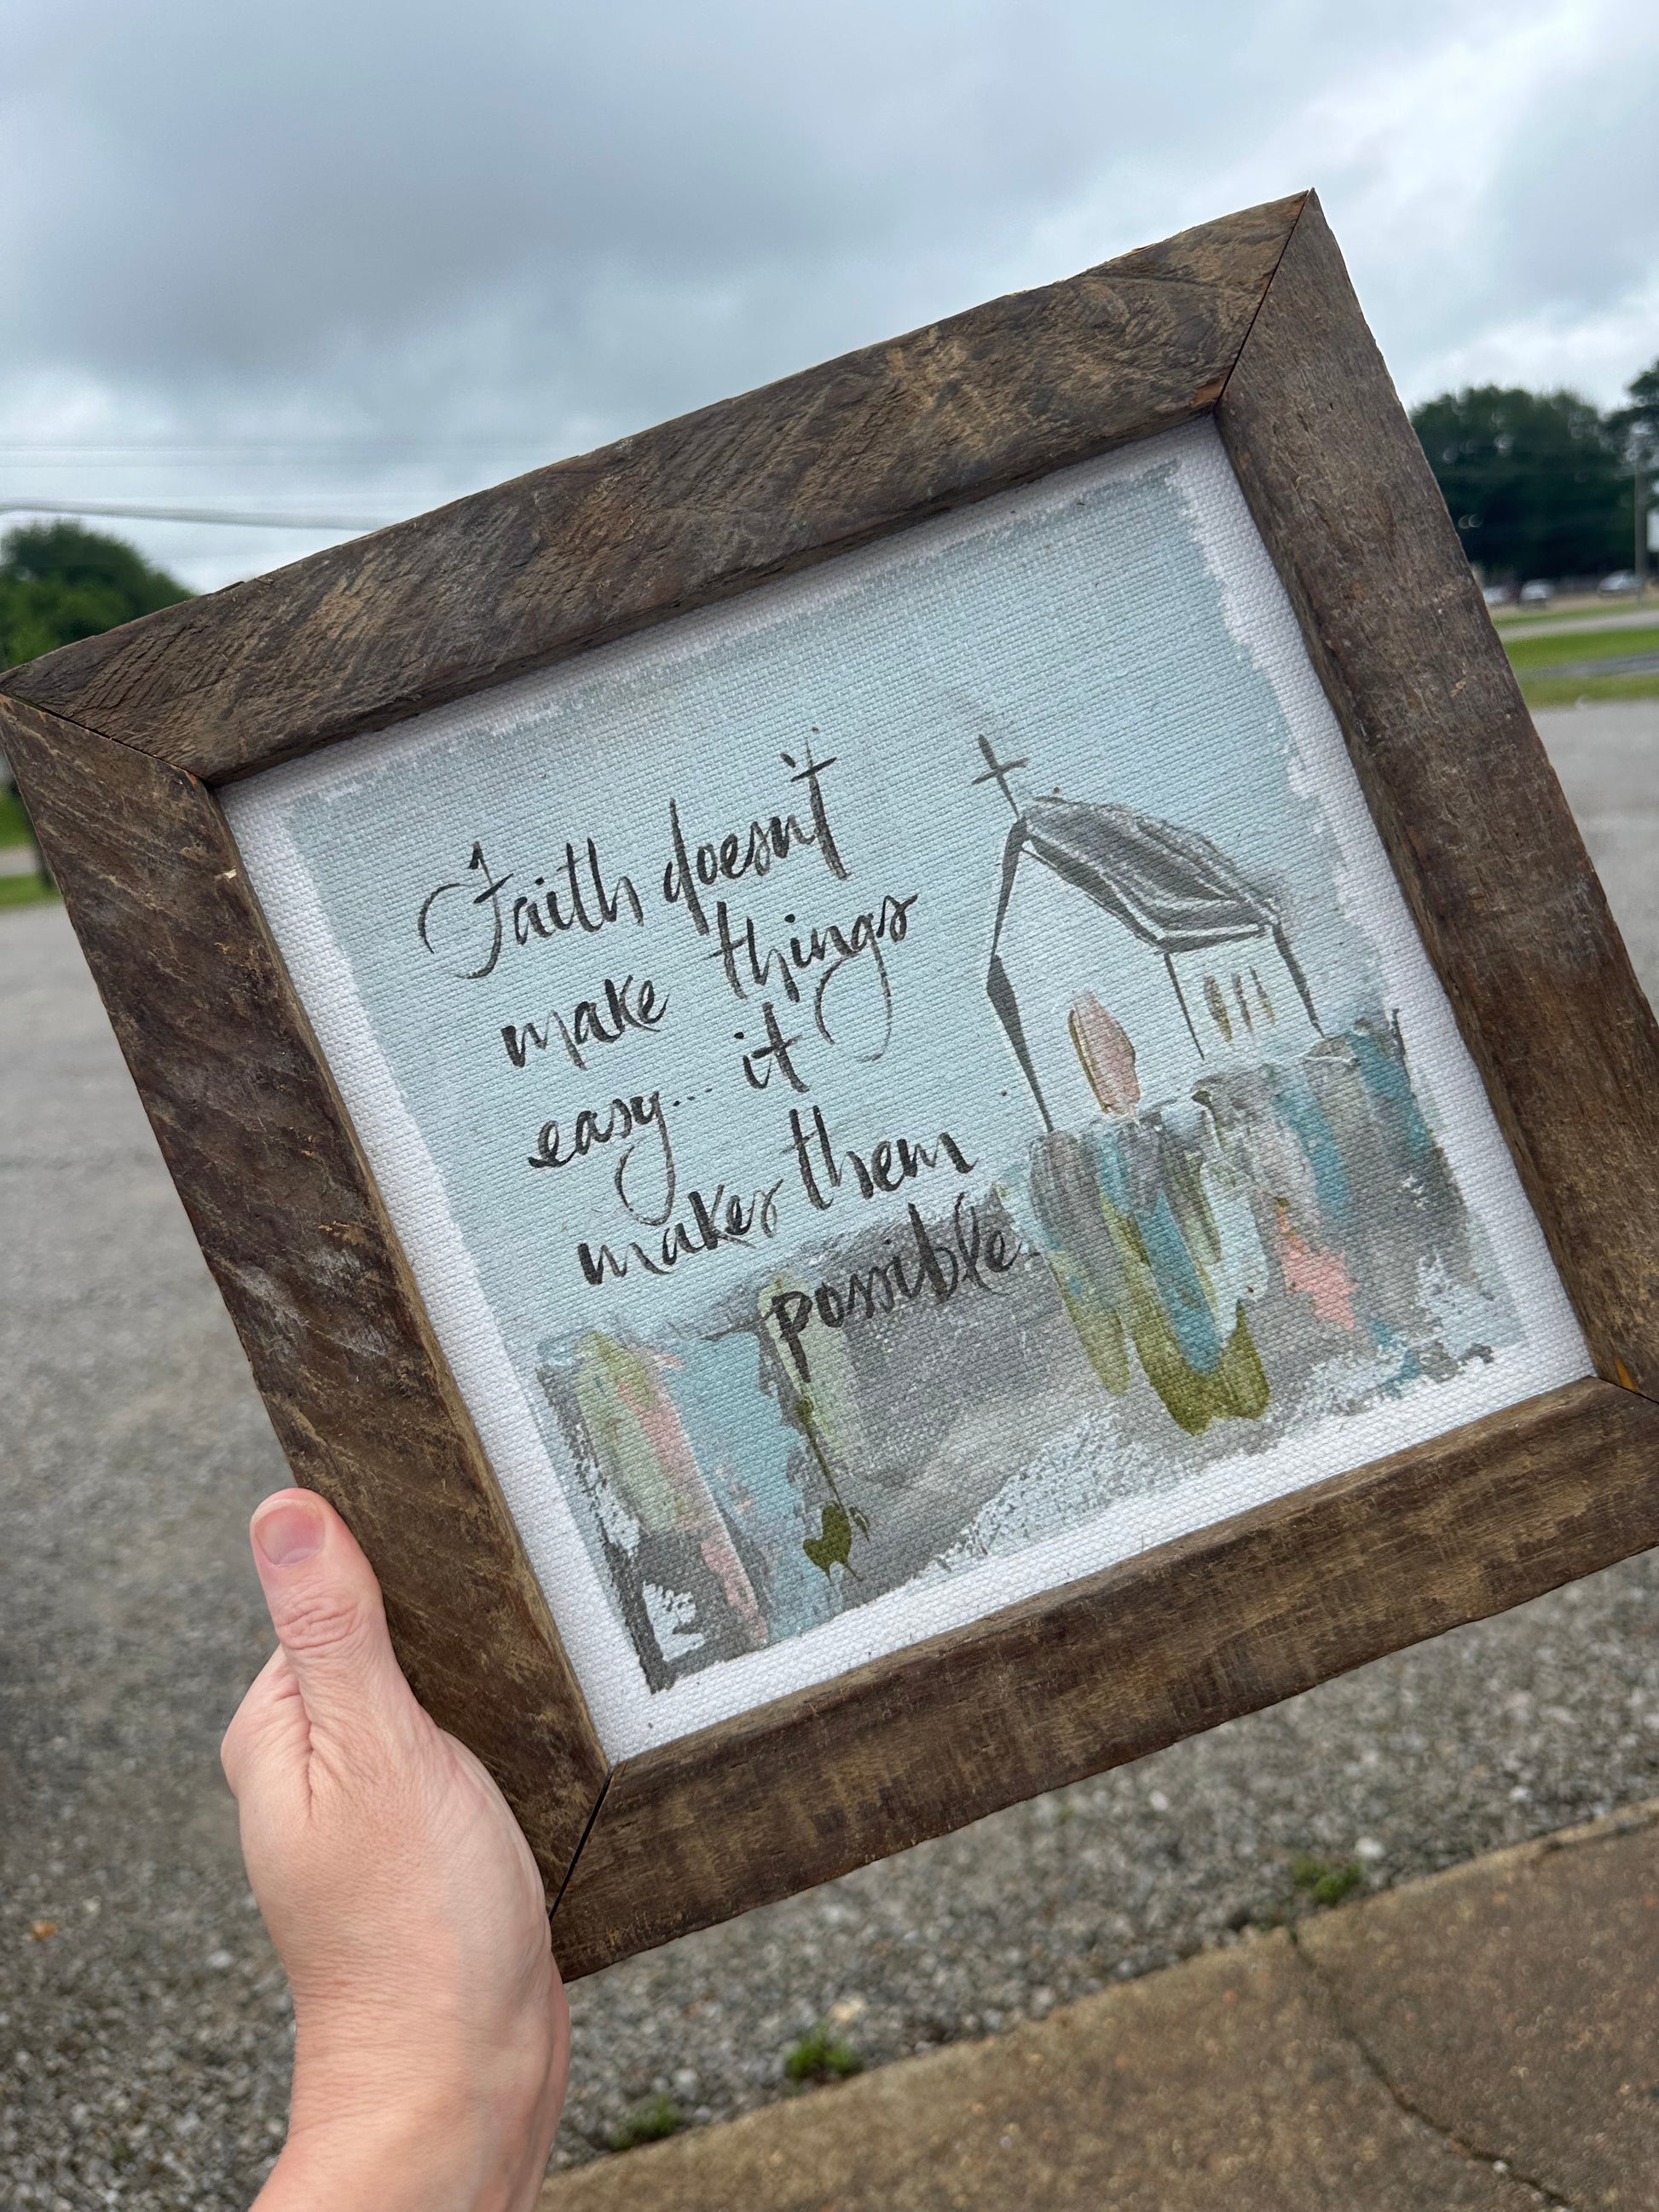 Faith doesn't
make things
easy... it
makes them
possible